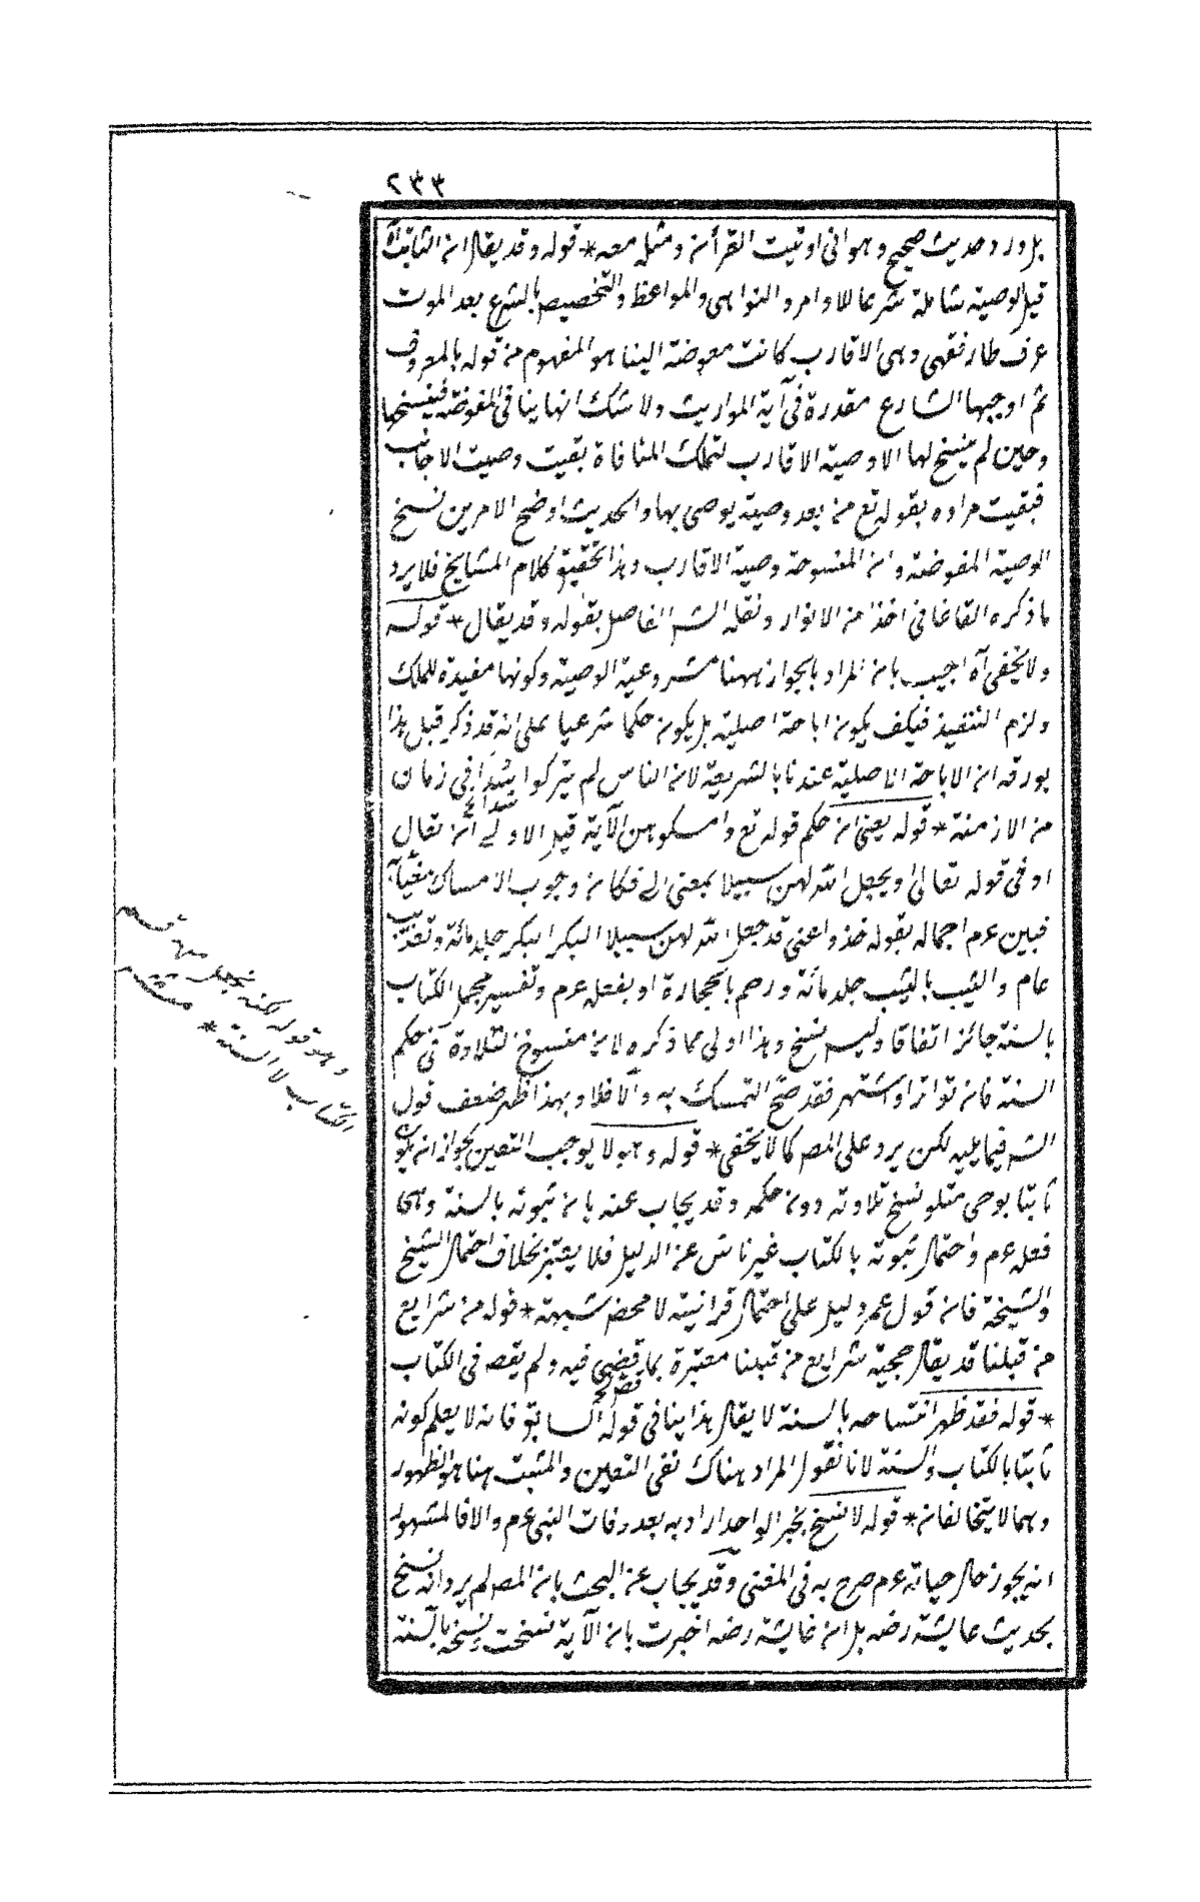 ٢٣٣
بل ورد حديث صحيح وهو انى اوتيت القرأن ومثله معه * قوله وقد يقال ان الثابت آه
قيل الوصية شاملة شرعا للاوامر والنواهى والمواعظ والتخصيص بالشرع بعد الموت
عرف طار فقهى وهى الاقارب كانت مفوضة الينا هو المفهوم من قوله بالمعروف
ثم اوجبها الشارع مقدرة فى آية المواريث ولا شك انها ينافى المفوضة فينسخها
وحين لم ينسخ لها الا وصية الاقارب لتملك المنافاة بقيت وصيت الاجانب
فبقيت مراده بقوله تع من بعد وصية يوصى بها والحديث اوضح الامرين نسخ
الوصية المفوضة وان المنسوخة وصية الاقارب وهذا تحقيق كلام المشايخ فلا يرد
ما ذكره القاغانى اخذا من الانوار ونقله الشر الفاضل بقوله وقد يقال * قوله
ولا يخفى آه اجيب بان المراد بالجواز ههنا مشروعية الوصية وكونها مفيدة للملك
ولزم التنفيذ فكيف يكون اباحة اصلية بل يكون حكما شرعيا على انه قد ذكر قبل هذا
بورقه ان الاباحة الاصلية عندنا بالشريعة لان الناس لم يتركوا سدا فى زمان
من الازمنة * قوله يعنى ان حكم قوله تع وامسكوهن الآية قيل الاولى ان يقال
او فى قوله تعالى ويجعل الله لهن سبيلا بمعنى الى فكان وجوب الامساك مغيآ به
فبين عم اجماله بقوله خذوا عنى قد جعل الله لهن سبيلا البكر بالبكر جلد مائة وتغريب
عام والثيب بالثيب جلد مائة ورجم بالحجارة او بفعله عم وتفسير مجمل الكتاب
بالسنة جائز اتفاقا وليس بنسخ وهذا اولى مما ذكره لان منسوخ التلاوة فى حكم
السنة فان تواتر او اشتهر فقد صح التمسك به والا فلا وبهذا ظهر ضعف قول
الشر فيما يليه لكن يرد على المص كما لا يخفى * قوله وهو لا يوجب التعين لجواز ان يكون
ثابتا بوحى متلو نسخ تلاوته دون حكمه وقد يجاب عنه بان ثبوته بالسنة وهى
فعله عم واحتمال ثبوته بالكتاب غير ناش عن الدليل فلا يعتبر بخلاف احتمال الشيخ
والشيخة فان قول عمر دليل على احتمال قرانيته لا محض شبهة * قوله من شرايع
من قبلنا قد يقال حجية شرايع من قبلنا معتبرة بما قضى فيه ولم يقص فى الكتاب
* قوله فقد ظهر انتساخه بالسنة لا يقال هذا ينافى قوله السابق فانه لا يعلم كونه
ثابتا بالكتاب والسنة لانا نقول المراد هناك نفى التعين والمثبت هنا هو الظهور
وهما لا يتخالفان * قوله لا نسخ بخبر الواحد اراد به بعد وفات النبى عم والا فالمشهور
انه يجوز حال حياته عم صرح به فى المغنى وقد يجاب عن البحث بان المص لم يرد انه نسخ
بحديث عايشة رضه بل ان عايشة رضه اخبرت بان الآية نسخت ونسخه بالسنة
وهو قوله لكنه يجعل
الكتاب لا السنة *